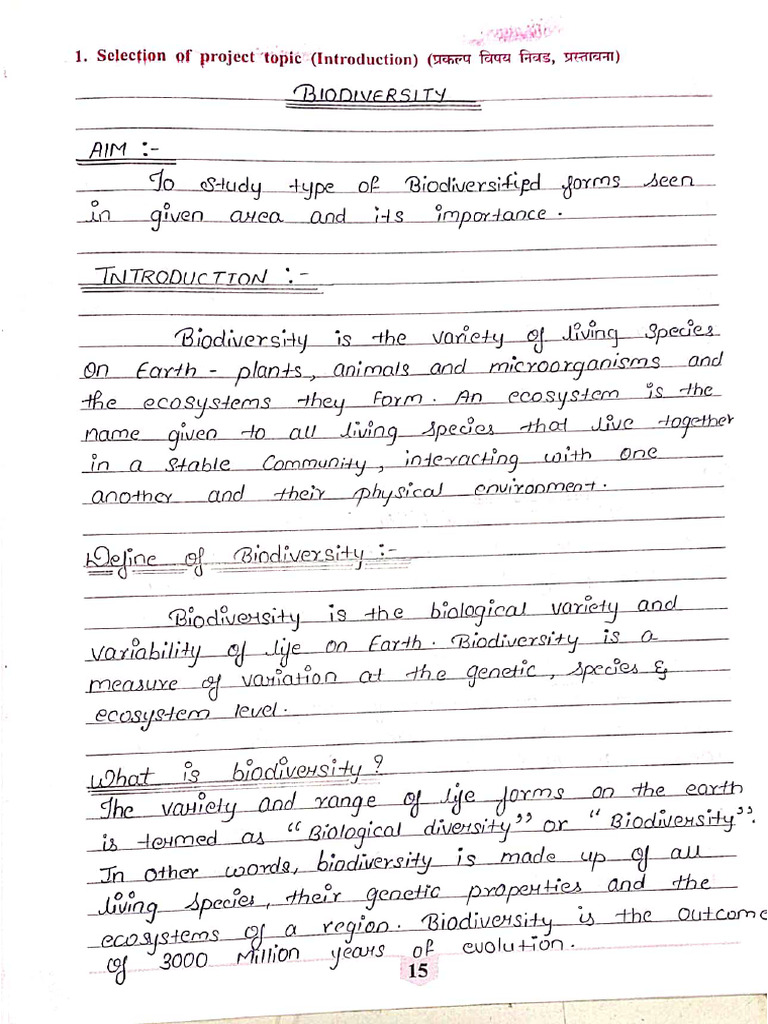 1. Selection of project topic (Introduction) (प्रकल्प विषय निवड, प्रस्तावना)
BIODIVERSITY
AIM :-
To study type of Biodiversified forms seen
in given area and its importance.
INTRODUCTION :-
Biodiversity is the variety of living species
on Earth - plants, animals and microorganisms and
the ecosystems they form. An ecosystem is the
name given to all living species that live together
in a stable Community, interacting with one
another and their physical environment.
Define of Biodiversity :-
Biodiversity is the biological variety and
variability of life on Earth. Biodiversity is a
measure of variation at the genetic, species &
ecosystem level.
What is biodiversity?
The variety and range of life forms on the earth
is termed as "Biological diversity" or "Biodiversity".
In other words, biodiversity is made up of all
living species, their genetic properties and the
ecosystems of a region. Biodiversity is the outcome
of 3000 Million years of evolution.
15